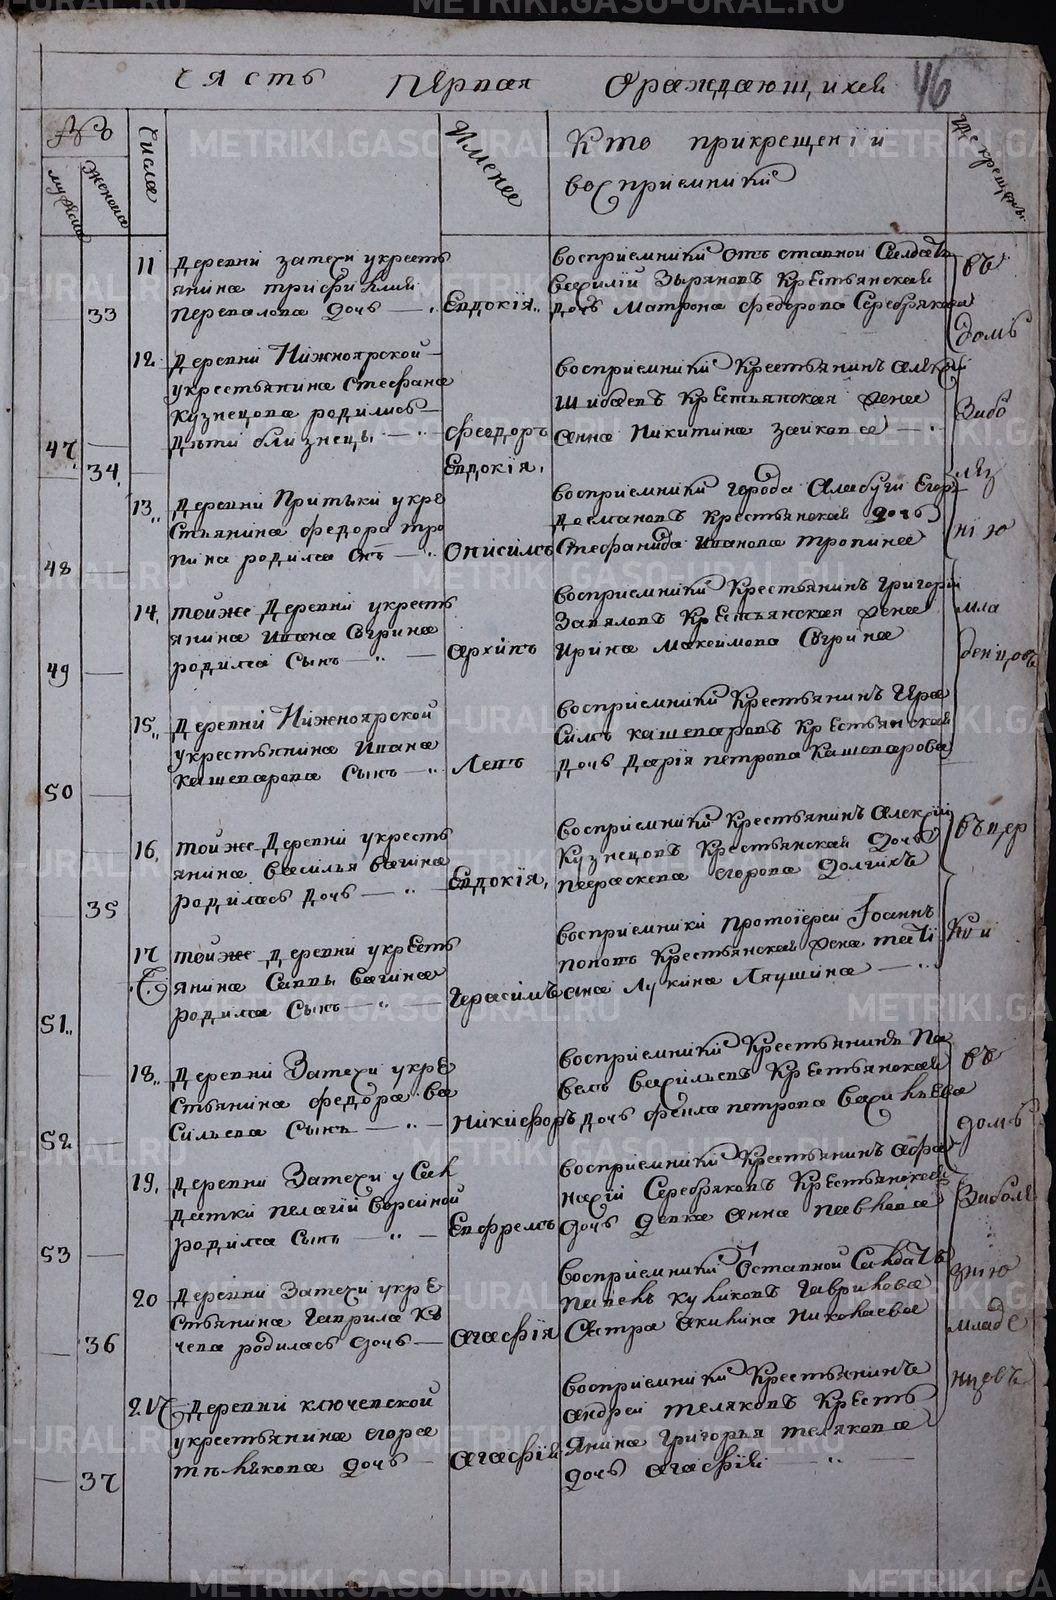 Часть первая о раждающихся
46
№
мужска
женска
Числа
Имена
Кто при крещении
восприемники
Где крещены
33
11
Деревни Затехи у крестъ
янина Трифилия
Перевалова дочь
Евдокия
восприемники отставной Салдатъ
Василий Зыряновъ Крестьянская
дочь Матрона Федорова Серебрякова
47
34
12
Деревни Нижноярской
у крестьянина Стефана
Кузнецова родились
дети близнецы
Феодоръ
Евдокия
восприемники Крестьянинъ Алексей
Шибаевъ Крестьянская жена
Анна Никитина Заикова
48
13
Деревни Притыки у кре
стьянина Федора Тро
пина родился снъ
Онисимъ
восприемники города Алабуги Егор
Крестьянская дочь
Стефанида Иванова Тропина
49
14
Той же Деревни у кресть
янина Ивана Сугрина
родился Сынъ
Архипъ
восприемники Крестьянинъ Григорий
Завяловъ Крестьянская жена
Ирина Максимова Сугрина
50
15
Деревни Нижноярской
у крестьянина Ивана
Кашеварова Сынъ
Левъ
восприемники Крестьянинъ Гера
симъ Кашеваровъ Крестьянская
дочь Дария Петрова Кашеварова
35
16
Той же Деревни у кресть
янина Василья Вагина
родилась дочь
Евдокия
восприемники Крестьянинъ Алексий
Кузнецовъ Крестьянская дочь
Параскева Егорова Долгихъ
51
17
Той же Деревни у кресть
янина Саввы Вагина
родился Сынъ
Герасимъ
восприемники Протоиерей Иоаннъ
Поповъ Крестьянская жена Тати
ана Лукина Ляушина
52
18
Деревни Затехи у кре
стьянина Федора Ва
сильева Сынъ
Никифоръ
восприемники Крестьянинъ Па
велъ Васильевъ Крестьянская
дочь Фекла Петрова Васильева
53
19
Деревни Затехи у Сал
датки Пелагии
родился Сынъ
Евфремъ
восприемники Крестьянинъ Афа
насий Серебряковъ Крестьянская
дочь девка Анна Павлова
36
20
Деревни Затехи у кре
стьянина Гаврила Ку
чева родилась дочь
Агафия
восприемники Отставной Салдатъ
Павелъ Куликовъ Гаврилова
Сестра Акилина Николаева
37
21
Деревни Ключевской
у крестьянина Егора
Телякова дочь
Агафия
восприемники Крестьянинъ
Андрей Теляковъ Кресть
янина Григорья Телякова
дочь Агафия
въ
доме
За бо
лез
нию
мла
денцовъ
въ цер
кви
въ
доме
За боле
знию
младе
нцевъ
METRIKI.GASO-URAL.RU